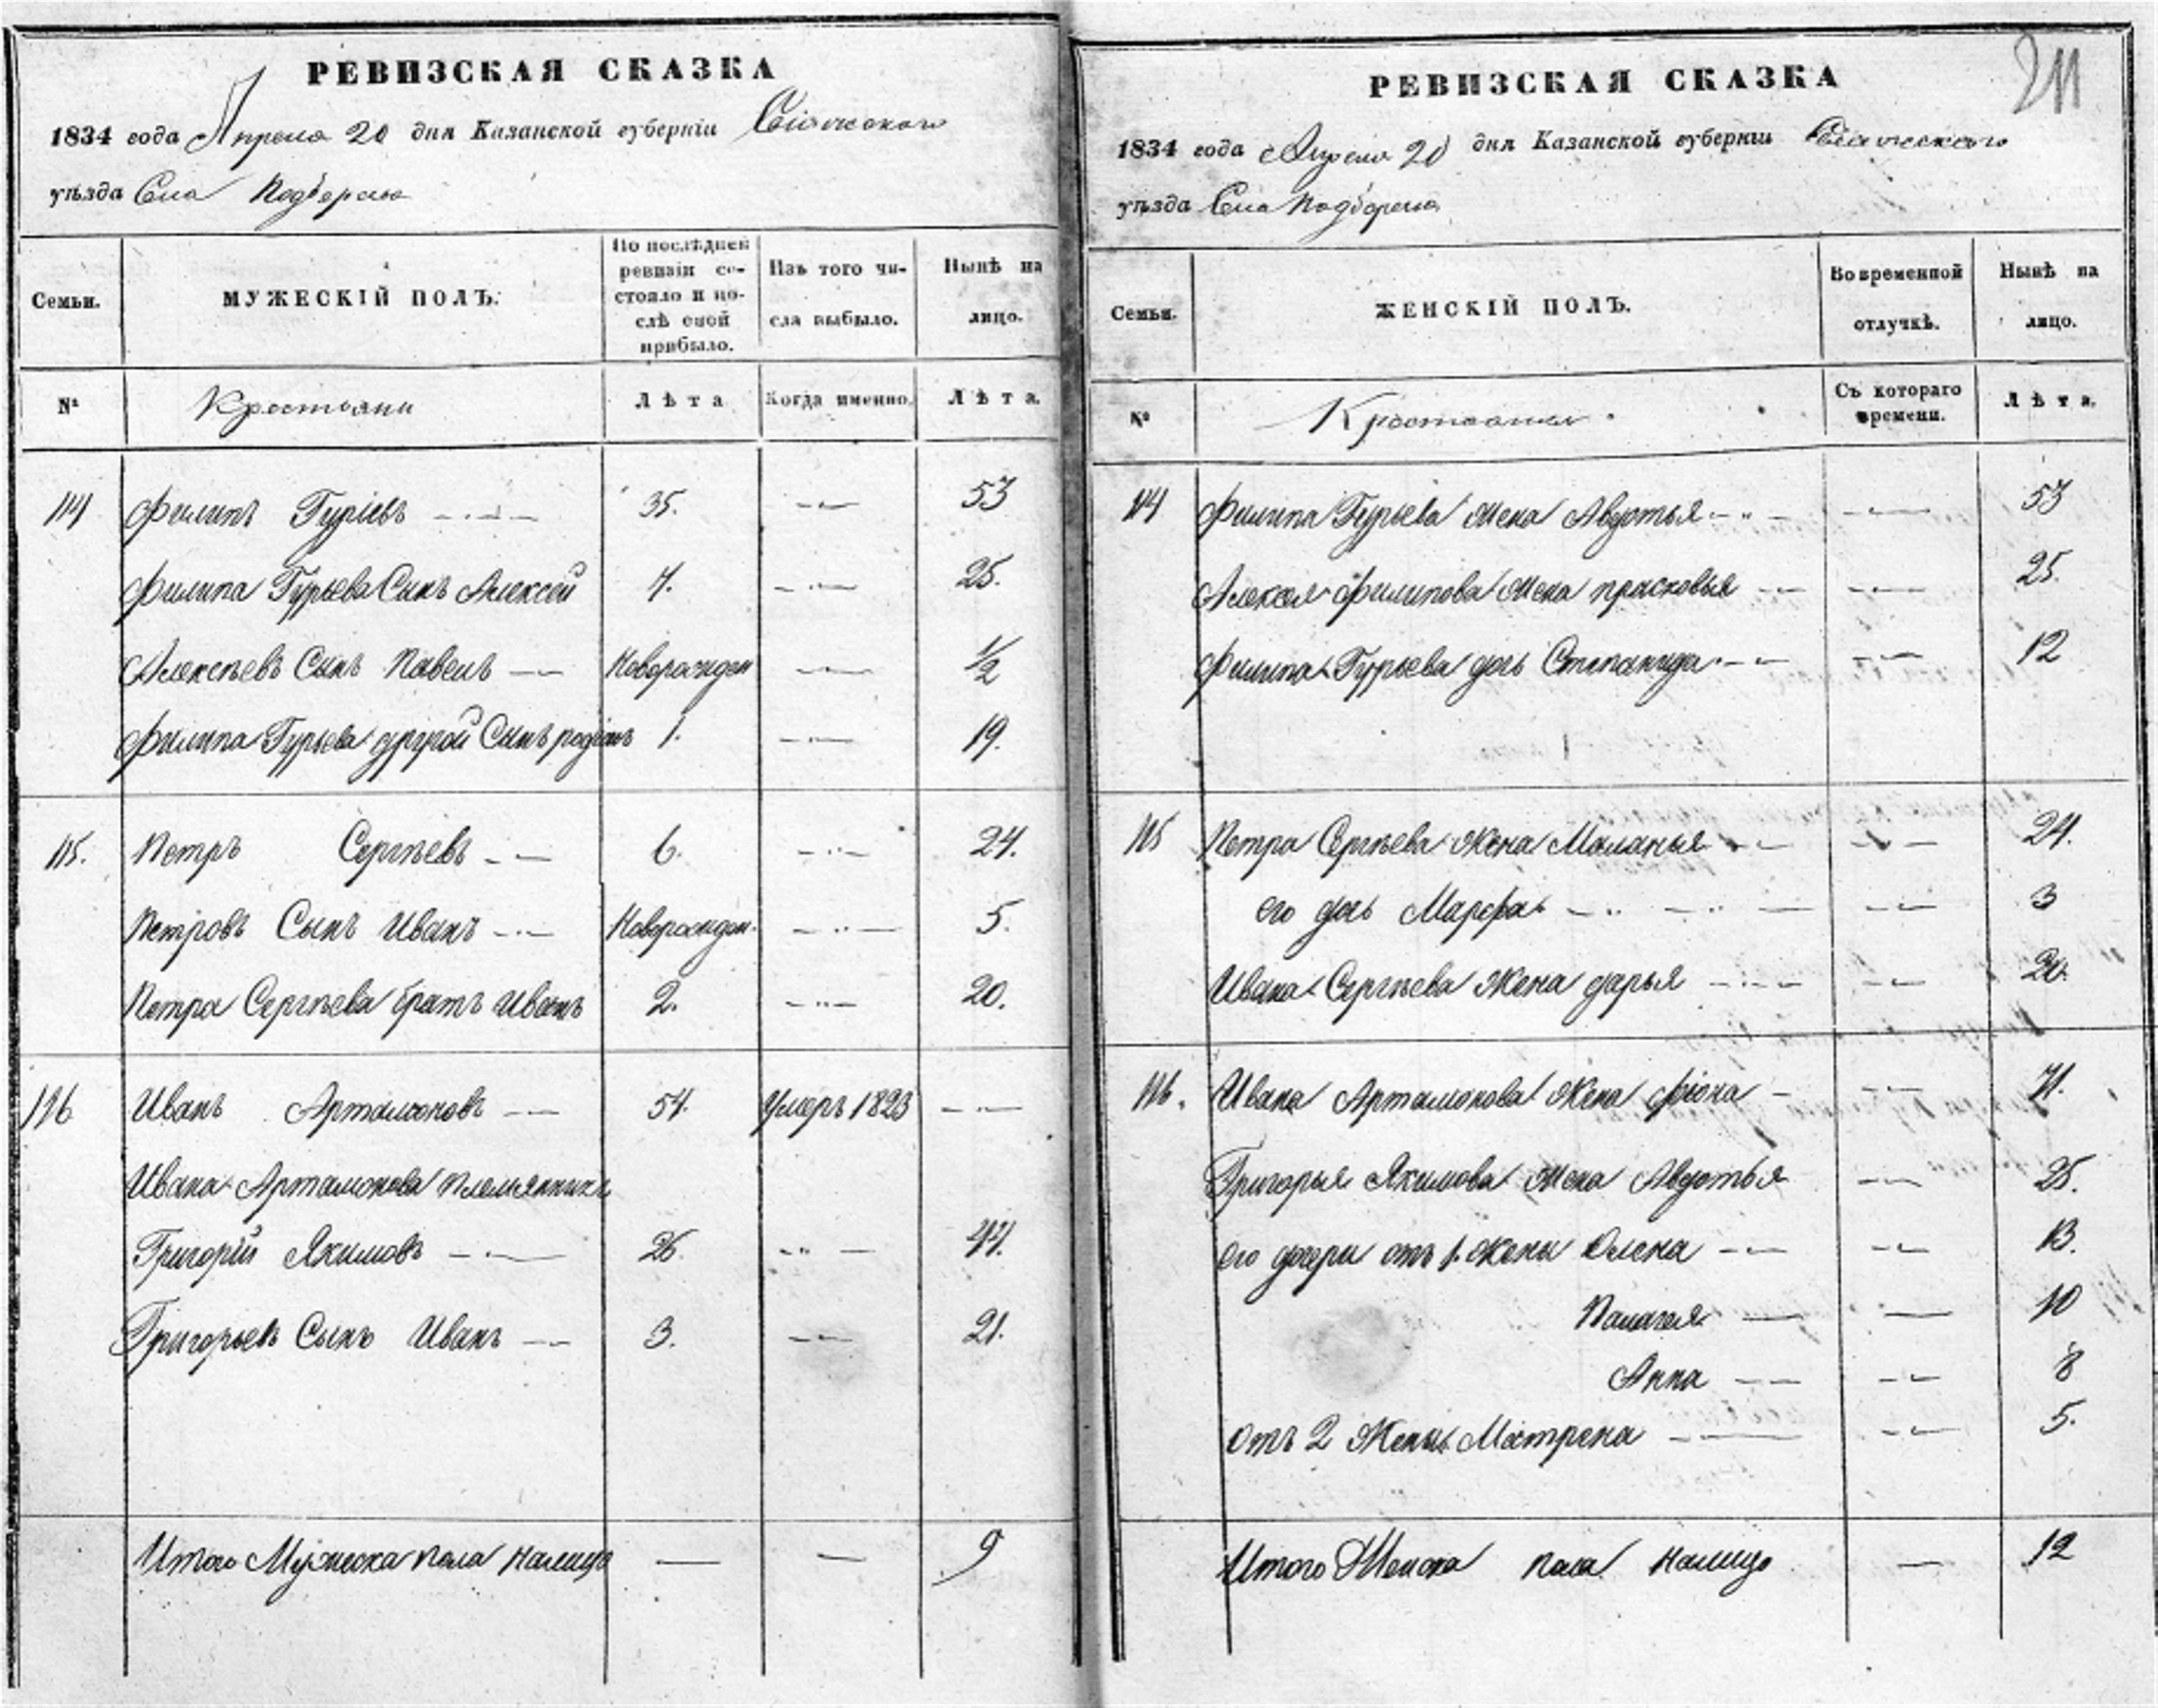 РЕВИЗСКАЯ СКАЗКА
1834 года Апреля 20 дня Казанской губернiи
уѣзда Села Подберезья
Семьи.
МУЖЕСКIЙ ПОЛЪ.
По послѣдней ревизiи состояло и послѣ оной прибыло.
Изъ того числа выбыло.
Нынѣ на лицо.
№
Крестьяни
Лѣта
Когда именно.
Лѣта.
114 Филипъ Гурiевъ 35. 53
Филипа Гурьева Сынъ Алексей 7. 25.
Алексѣевъ Сынъ Павелъ Новорожден 1/2
Филипа Гурьева другой Сынъ родiонъ 1. 19.
115. Петръ Сергѣевъ 6. 24.
Петровъ Сынъ Иванъ Новорожден. 5.
Петра Сергѣева братъ Иванъ 2. 20.
116 Иванъ Артамоновъ 54. Умеръ 1823
Ивана Артамонова племянникъ
Григорiй Якимовъ 26. 44.
Григорьевъ Сынъ Иванъ 3. 21.
Итого Мужеска пола налицо 9
211
РЕВИЗСКАЯ СКАЗКА
1834 года Апреля 20 дня Казанской губернiи
уѣзда Села Подберезья
Семьи.
ЖЕНСКIЙ ПОЛЪ.
Во временной отлучкѣ.
Нынѣ на лицо.
№
Съ котораго времени.
Лѣта.
114 Филипа Гурьева Жена Авдотья 53
Алексея Филипова Жена прасковья 25.
Филипа Гурьева дочь Степанида 12
115 Петра Сергѣева Жена Маланья 24.
его дочь Марфа 3
Ивана Сергѣева Жена дарья 20.
116. Ивана Артамонова Жена фiона 71.
Григорья Якимова Жена Авдотья 25.
его дочери отъ 1. жены Олена 13.
Палагея 10
Анна 8
Отъ 2 Жены Матрена 5.
Итого Женска пола налицо 12